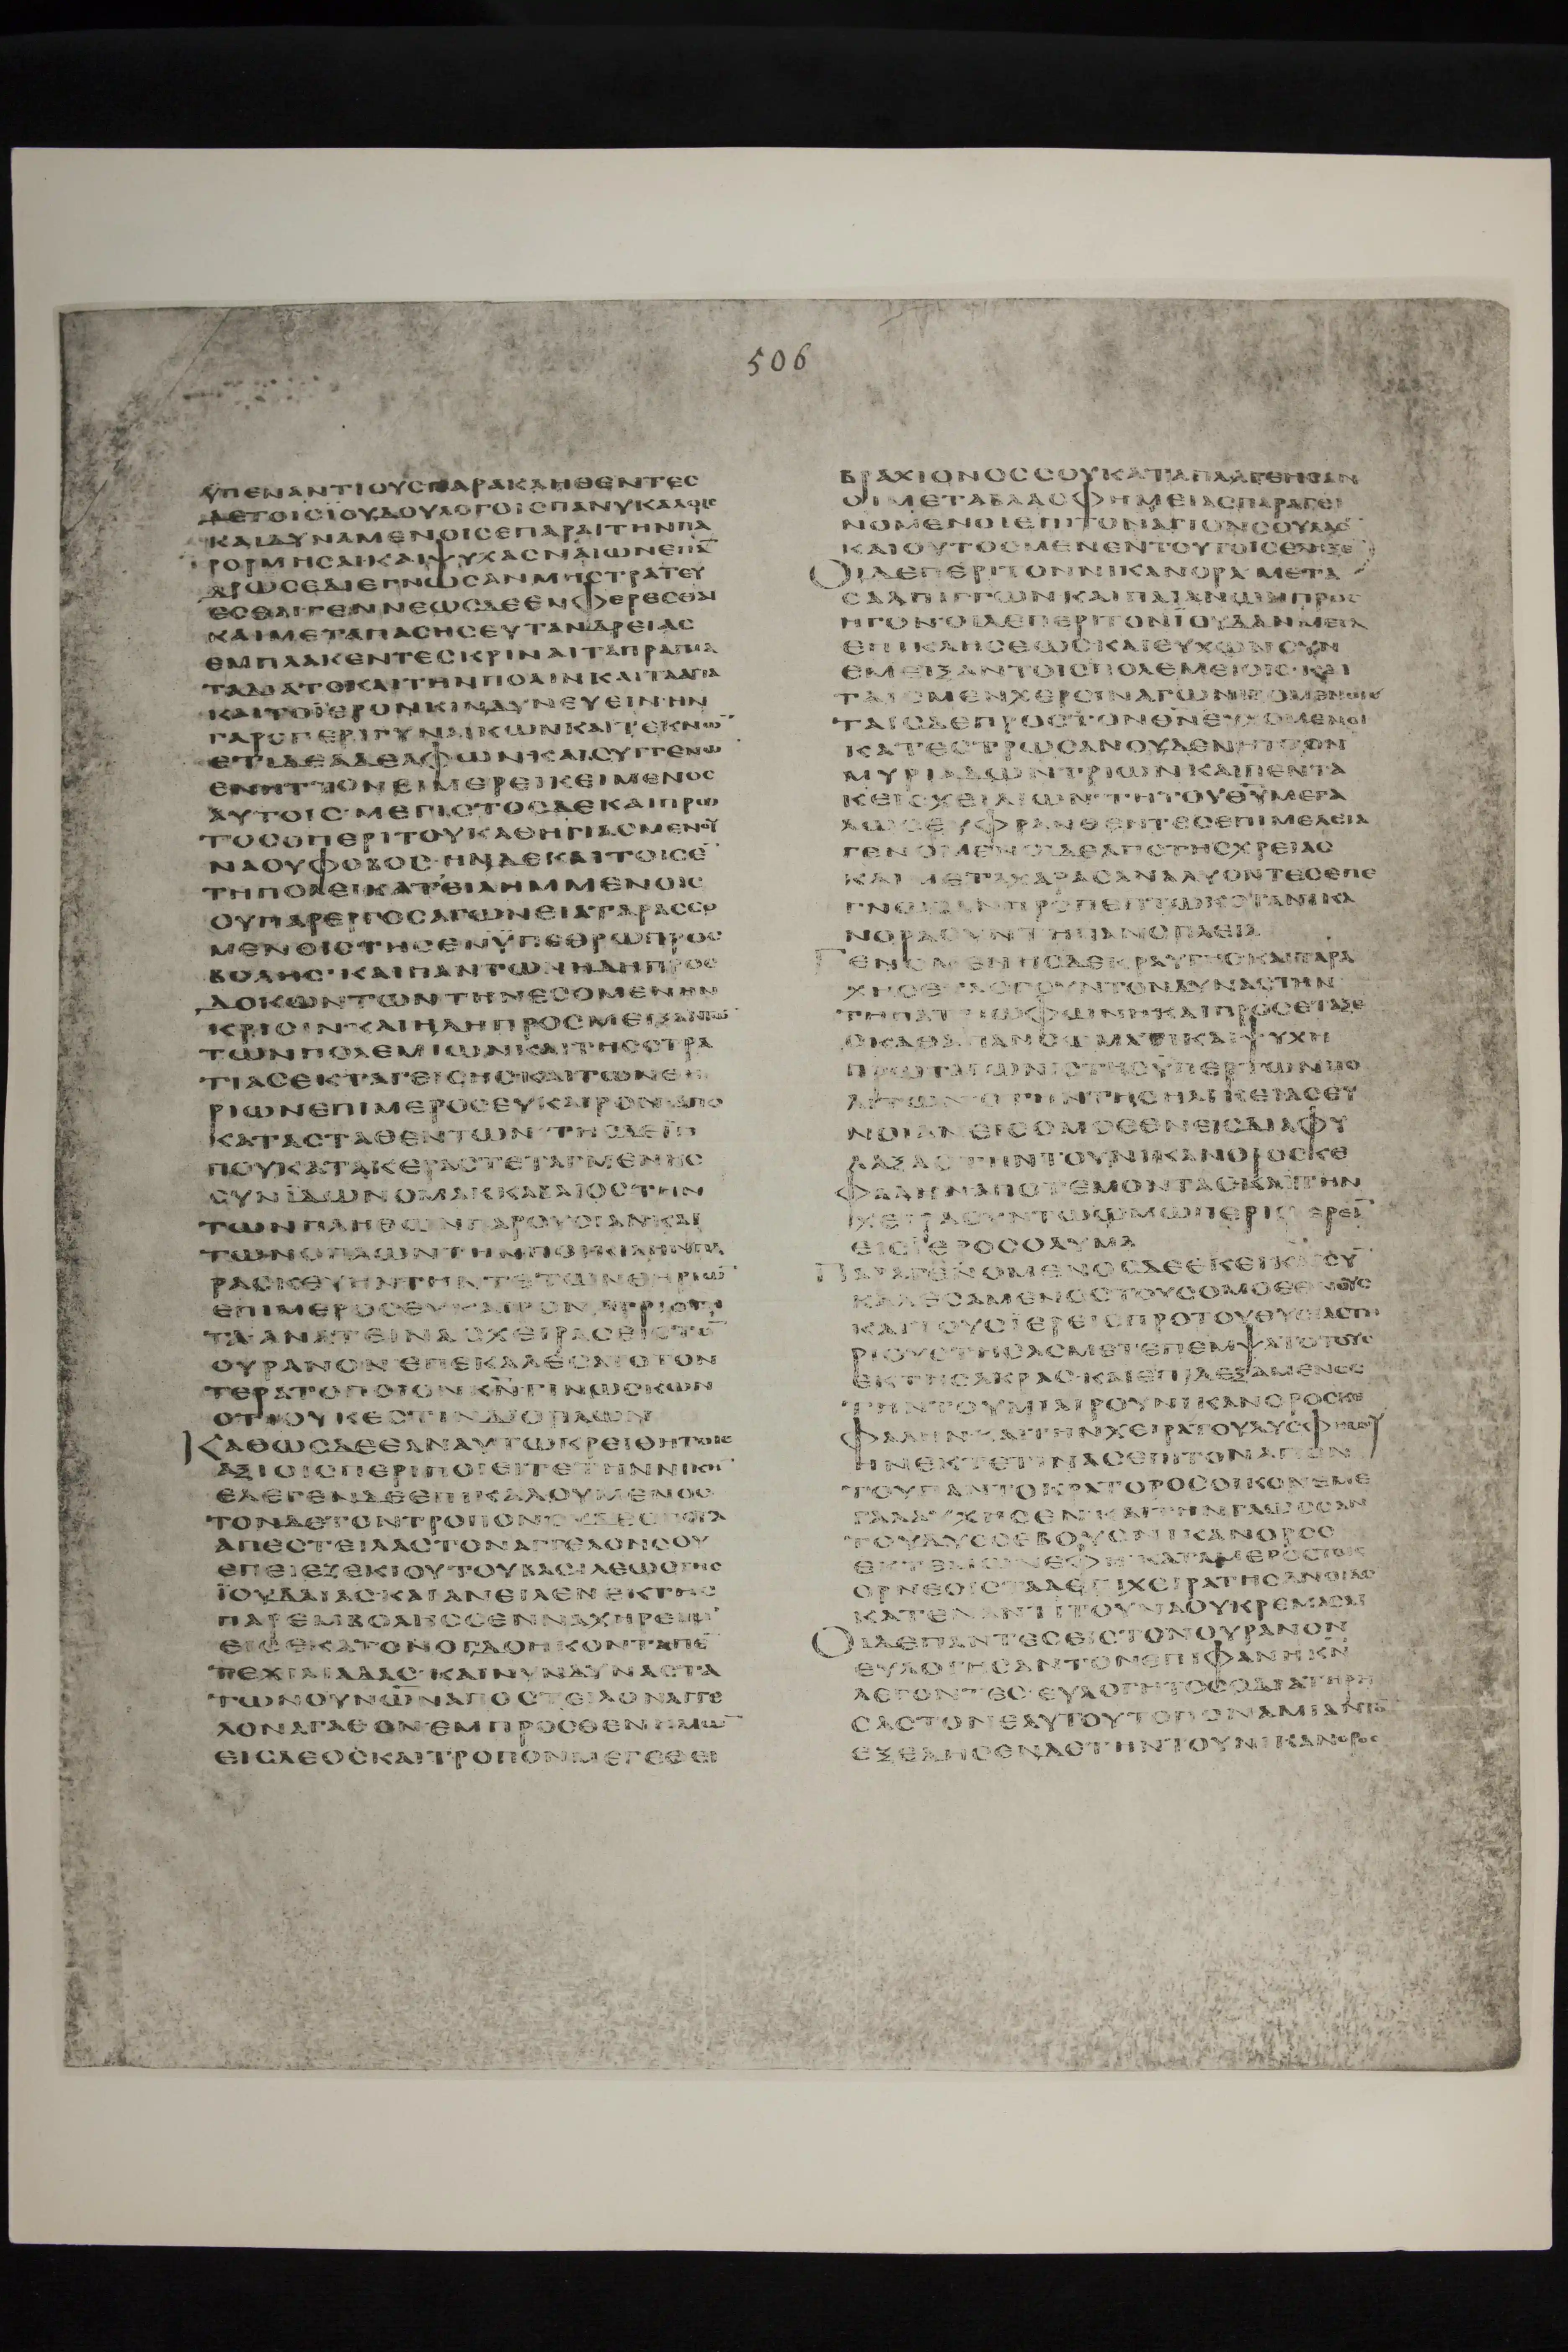 506
ΥΠΕΝΑΝΤΙΟΥϹΠΑΡΑΚΛΗΘΕΝΤΕϹ
ΔΕΤΟΙϹΙΟΥΔΟΥΛΟΓΟΙϹΠΑΝΥΚΑΛΟΙϹ
ΚΑΙΔΥΝΑΜΕΝΟΙϹΕΠΑΡΑΙΤΗΝΠΑ
ΡΟΡΜΗϹΑΙΚΑΙΨΥΧΑϹΝΑΙΩΝΕΠΑ̅
ΑΡΩϹΕΔΙΕΓΝΩϹΑΝΜΗϹΤΡΑΤΕΥ
ΕϹΘΑΙΓΕΝΝΕΩϹΔΕΕΝΦΕΡΕϹΘΑΙ
ΚΑΙΜΕΤΑΠΑϹΗϹΕΥΤΑΝΔΡΕΙΑϹ
ΕΜΠΛΑΚΕΝΤΕϹΚΡΙΝΑΙΤΑΠΡΑΓΜΑ
ΤΑΔΙΑΤΟΚΑΙΤΗΝΠΟΛΙΝΚΑΙΤΑΑΓΙΑ
ΚΑΙΤΟΪΕΡΟΝΚΙΝΔΥΝΕΥΕΙΝ·ΗΝ
ΓΑΡΟΠΕΡΙΓΥΝΑΙΚΩΝΚΑΙΤΕΚΝΩ̅
ΕΤΙΔΕΑΔΕΛΦΩΝΚΑΙϹΥΓΓΕΝΩ̅
ΕΝΗΤΤΟΝΕΙΜΕΡΕΙΚΕΙΜΕΝΟϹ
ΑΥΤΟΙϹ·ΜΕΓΙϹΤΟϹΔΕΚΑΙΠΡΩ
ΤΟϹΟΠΕΡΙΤΟΥΚΑΘΗΓΙΑϹΜΕΝΟΥ
ΝΑΟΥΦΟΒΟϹ·ΗΝΔΕΚΑΙΤΟΙϹΕ̅
ΤΗΠΟΛΕΙΚΑΤΕΙΛΗΜΜΕΝΟΙϹ
ΟΥΠΑΡΕΡΓΟϹΑΓΩΝΕΙΑΤΑΡΑϹϹΟ
ΜΕΝΟΙϹΤΗϹΕΝΫΠΕΘΡΩΠΡΟϹ
ΒΟΛΗϹ·ΚΑΙΠΑΝΤΩΝΗΔΗΠΡΟϹ
ΔΟΚΩΝΤΩΝΤΗΝΕϹΟΜΕΝΗΝ
ΚΡΙϹΙΝ·ΚΑΙΗΔΗΠΡΟϹΜΕΙΞΑΝΤΩ̅
ΤΩΝΠΟΛΕΜΙΩΝΚΑΙΤΗϹϹΤΡΑ
ΤΙΑϹΕΚΤΑΓΕΙϹΗϹΚΑΙΤΩΝΘΗ
ΡΙΩΝΕΠΙΜΕΡΟϹΕΥΚΑΙΡΟΝΑΠΟ
ΚΑΤΑϹΤΑΘΕΝΤΩΝ·ΤΗϹΔΕΪΠ
ΠΟΥΚΑΤΑΚΕΡΑϹΤΕΤΑΓΜΕΝΗϹ
ϹΥΝΪΔΩΝΟΜΑΚΚΑΒΑΙΟϹΤΗΝ
ΤΩΝΠΛΗΘΩΝΠΑΡΟΥϹΙΑΝΚΑΙ
ΤΩΝΟΠΛΩΝΤΗΝΠΟΙΚΙΛΗΝΠΑ
ΡΑϹΚΕΥΗΝΤΗΝΤΕΤΩΝΘΗΡΙΩ̅
ΕΠΙΜΕΡΟϹΕΥΚΑΙΡΟΝΑΓΡΙΟΤΗ
ΤΑ·ΑΝΑΤΕΙΝΑϹΧΕΙΡΑϹΕΙϹΤΟ̅
ΟΥΡΑΝΟΝΕΠΕΚΑΛΕϹΑΤΟΤΟΝ
ΤΕΡΑΤΟΠΟΙΟΝΚ̅Ν̅ΓΙΝΩϹΚΩΝ
ΟΤΙΟΥΚΕϹΤΙΝΔΙΟΠΛΩΝ
ΚΑΘΩϹΔΕΕΑΝΑΥΤΩΚΡΕΙΘΗΤΟΙϹ
ΑΞΙΟΙϹΠΕΡΙΠΟΙΕΙΤΕΤΗΝΝΙΚΗ̅
ΕΛΕΓΕΝΔΕΕΠΙΚΑΛΟΥΜΕΝΟϹ
ΤΟΝΔΕΤΟΝΤΡΟΠΟΝϹΥΔΕϹΠΟΤΑ
ΑΠΕϹΤΕΙΛΑϹΤΟΝΑΓΓΕΛΟΝϹΟΥ
ΕΠΕΙΕΖΕΚΙΟΥΤΟΥΒΑϹΙΛΕΩϹΤΗϹ
ΪΟΥΔΑΙΑϹ·ΚΑΙΑΝΕΙΛΕΝΕΚΤΗϹ
ΠΑΡΕΜΒΟΛΗϹϹΕΝΝΑΧΗΡΕΙΜ
ΕΙϹΕΚΑΤΟΝΟΓΔΟΗΚΟΝΤΑΠΕ̅
ΤΕΧΙΛΙΑΔΑϹ·ΚΑΙΝΥΝΔΥΝΑϹΤΑ
ΤΩΝΟΥΝΩ̅Ν̅ΑΠΟϹΤΕΙΛΟΝΑΓΓΕ
ΛΟΝΑΓΑΘΟΝΕΜΠΡΟϹΘΕΝΗΜΩ̅
ΕΙϹΔΕΟϹΚΑΙΤΡΟΠΟΝΜΕΓΕΘΕΙ
ΒΡΑΧΙΟΝΟϹϹΟΥΚΑΤΑΠΛΑΓΕΙΗϹΑΝ
ΟΙΜΕΤΑΒΛΑϹΦΗΜΕΙΑϹΠΑΡΑΓΕΙ
ΝΟΜΕΝΟΙΕΠΙΤΟΝΑΓΙΟΝϹΟΥΛΑΟ̅
ΚΑΙΟΥΤΟϹΜΕΝΕΝΤΟΥΤΟΙϹΕΛΗΞΕ̅
ΟΙΔΕΠΕΡΙΤΟΝΝΙΚΑΝΟΡΑΜΕΤΑ
ϹΑΛΠΙΓΓΩΝΚΑΙΠΑΙΑΝΩΝΠΡΟϹ
ΗΓΟΝ·ΟΙΔΕΠΕΡΙΤΟΝΪΟΥΔΑΝΜΕΤΑ
ΕΠΙΚΛΗϹΕΩϹΚΑΙΕΥΧΩΝϹΥΝ
ΕΜΕΙΞΑΝΤΟΙϹΠΟΛΕΜΕΙΟΙϹ·ΚΑΙ
ΤΑΙϹΜΕΝΧΕΡϹΙΝΑΓΩΝΙΖΟΜΕΝΟΙ
ΤΑΙϹΔΕΠΡΟϹΤΟΝΘ̅Ν̅ΕΥΧΟΜΕΝΟΙ
ΚΑΤΕϹΤΡΩϹΑΝΟΥΔΕΝΗΤΤΟΝ
ΜΥΡΙΑΔΩΝΤΡΙΩΝΚΑΙΠΕΝΤΑ
ΚΕΙϹΧΕΙΛΙΩΝ·ΤΗΤΟΥΘ̅Υ̅ΜΕΓΑ
ΛΩϹΕΥΦΡΑΝΘΕΝΤΕϹΕΠΙΜΕΛΕΙΑ
ΓΕΝΟΜΕΝΟΙΔΕΑΠΟΤΗϹΧΡΕΙΑϹ
ΚΑΙΜΕΤΑΧΑΡΑϹΑΝΑΛΥΟΝΤΕϹΕΠΕ
ΓΝΩϹΑΝΠΡΟΠΕΠΤΩΚΟΤΑΝΙΚΑ
ΝΟΡΑϹΥΝΤΗΠΑΝΟΠΛΕΙΑ
ΓΕΝΟΜΕΝΗϹΔΕΚΡΑΥΓΗϹΚΑΙΤΑΡΑ
ΧΗϹΕΥΛΟΓΟΥΝΤΟΝΔΥΝΑϹΤΗΝ
ΤΗΠΑΤΡΙΩΦΩΝΗ·ΚΑΙΠΡΟϹΕΤΑΞΕ
ΟΚΑΘΑΠΑΝϹΩΜΑΤΙΚΑΙΨΥΧΗ
ΠΡΩΤΑΓΩΝΙϹΤΗϹΫΠΕΡΤΩΝΠΟ
ΛΙΤΩΝΟΤΗΝΤΗϹΗΛΙΚΕΙΑϹΕΥ
ΝΟΙΑΝΕΙϹΟΜΟΕΘΝΕΙϹΔΙΑΦΥ
ΛΑΞΑϹΤΗΝΤΟΥΝΙΚΑΝΟΡΟϹΚΕ
ΦΑΛΗΝΑΠΟΤΕΜΟΝΤΑϹΚΑΙΤΗΝ
ΧΕΙΡΑϹΥΝΤΩΩΜΩΠΕΡΙϹΦΕΡΕΙ̅
ΕΙϹΪΕΡΟϹΟΛΥΜΑ
ΠΑΡΑΓΕΝΟΜΕΝΟϹΔΕΕΚΕΙΚΑΙϹΥ̅
ΚΑΛΕϹΑΜΕΝΟϹΤΟΥϹΟΜΟΕΘΝΟΥϹ
ΚΑΙΤΟΥϹΪΕΡΕΙϹΠΡΟΤΟΥΘΥϹΙΑϹΤΗ
ΡΙΟΥϹΤΗϹΑϹΜΕΤΕΠΕΜΨΑΤΟΤΟΥϹ
ΕΚΤΗϹΑΚΡΑϹ·ΚΑΙΕΠΙΔΕΞΑΜΕΝΟϹ
ΤΗΝΤΟΥΜΙΑΡΟΥΝΙΚΑΝΟΡΟϹΚΕ
ΦΑΛΗΝΚΑΙΤΗΝΧΕΙΡΑΤΟΥΔΥϹΦΗΜΟΥ
ΗΝΕΚΤΕΙΝΑϹΕΠΙΤΟΝΑΓΙΟΝ
ΤΟΥΠΑΝΤΟΚΡΑΤΟΡΟϹΟΙΚΟΝΕΜΕ
ΓΑΛΑΥΧΗϹΕΝ·ΚΑΙΤΗΝΓΛΩϹϹΑΝ
ΤΟΥΔΥϹϹΕΒΟΥϹΝΙΚΑΝΟΡΟϹ
ΕΚΤΕΜΩΝΕΦΗΚΑΤΑΜΕΡΟϹΤΟΙϹ
ΟΡΝΕΟΙϹΤΑΔΕΠΙΧΕΙΡΑΤΗϹΑΝΟΙΑϹ
ΚΑΤΕΝΑΝΤΙΤΟΥΝΑΟΥΚΡΕΜΑϹΑΙ
ΟΙΔΕΠΑΝΤΕϹΕΙϹΤΟΝΟΥΡΑΝΟΝ
ΕΥΛΟΓΗϹΑΝΤΟΝΕΠΙΦΑΝΗΚ̅Ν̅
ΛΕΓΟΝΤΕϹ·ΕΥΛΟΓΗΤΟϹΟΔΙΑΤΗΡΗ
ϹΑϹΤΟΝΕΑΥΤΟΥΤΟΠΟΝΑΜΙΑΝΤΟ̅
ΕΞΕΔΗϹΕΝΔΕΤΗΝΤΟΥΝΙΚΑΝΟΡΟϹ